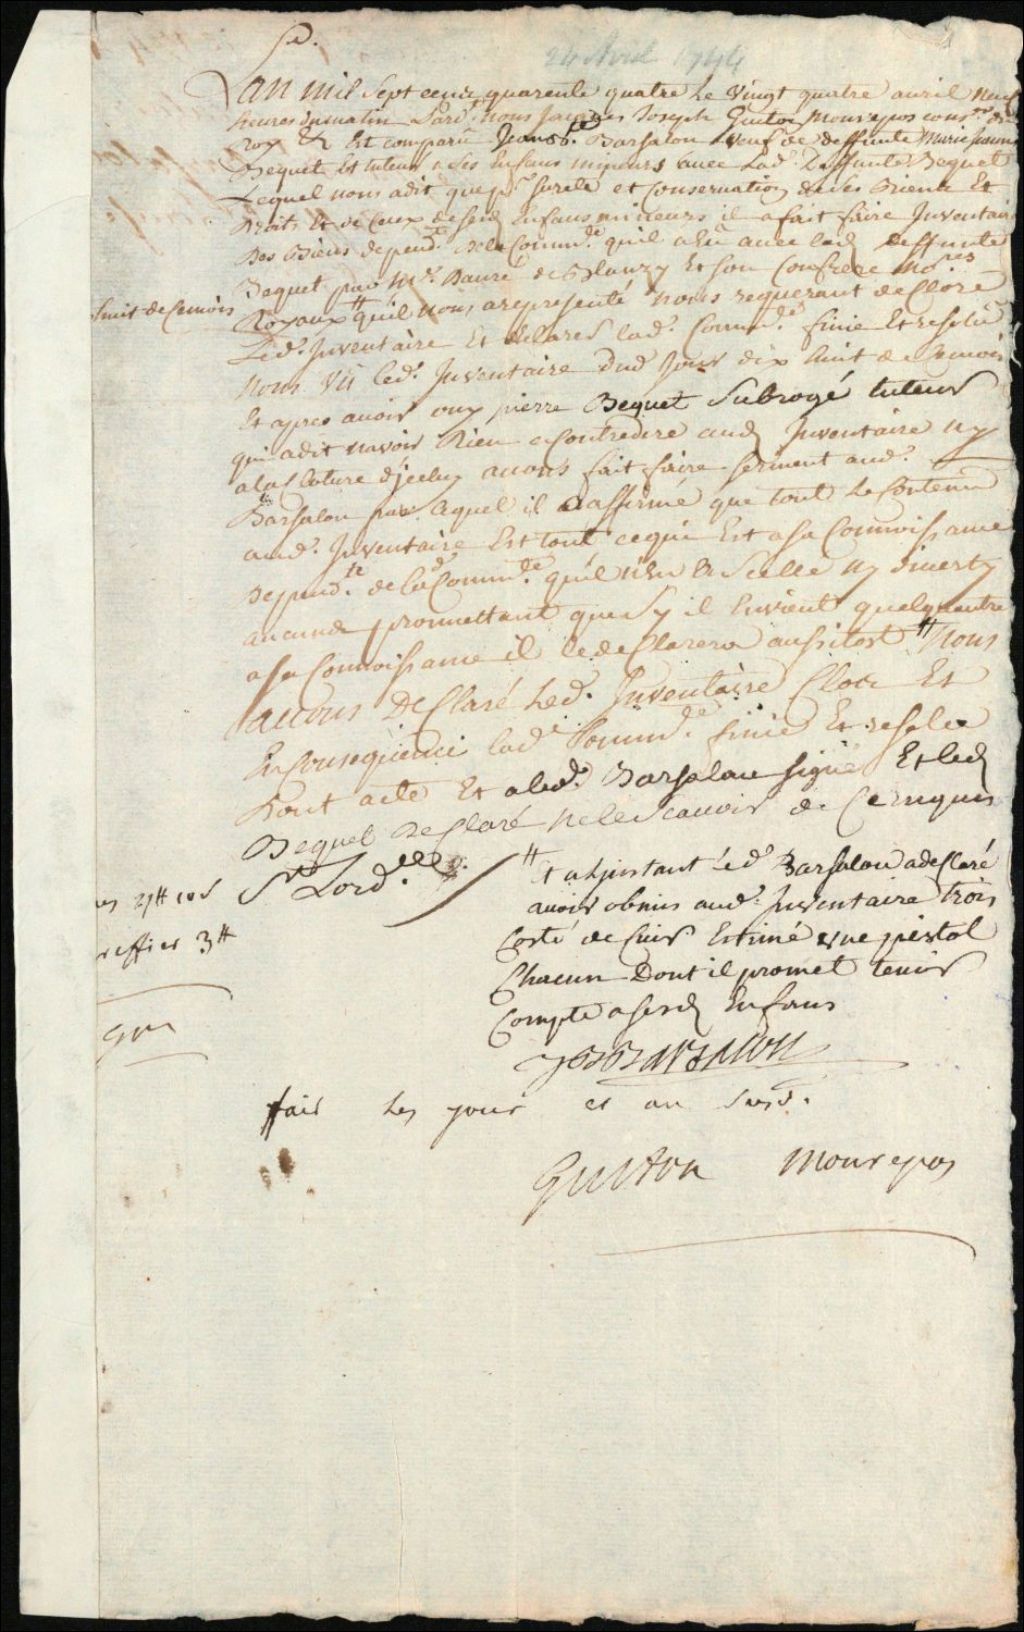 24 Avril 1744
Lan mil Sept cent quarente quatre Le Vingt quatre auril Neuf
heures dumatin Pard.t Nous Jacques Joseph Guiton Monrepos cons.er du
Roy & Est comparü Jean B.te Barsalou Veuf de deffunte Marie Jeanne
Bequet Et tuteur a Ses Enfans mineurs auec Lad. Deffunte Bequet
Lequel nous adit que p.r Sureté et Conseruation deses Biens Et
Droits Et de Ceux desesd Enfans mineurs il afait faire Inventaire
Des Biens depend.t dela Comm.té quil aEü auec lad Deffunte
Bequet par M.e Danré de Blanzy Et Son Confrere No.res
Royaux # quil Nous arepresenté Nous requerant de Clore
huit de Cemois
Led. Inventaire Et declarer lad. Comm.té finie Et resolüe
Nous Vü led. Inventaire Dud Jour dix huit de Cemois
Et apres auoir ouy pierre Bequet Subrogé tuteur
qui adit nauoir Rien aContredire aud Inventaire ny
ala Cloture d'jceluy auons fait faire serment aud.
Barsalou par Laquel il aaffirmé que tout Le Contenu
aud. Inventaire Est tout cequi Est asa Connoissance
Depend.t de lad Comm.té quil n'En a Scellé ny diuerty
aucune promettant que Sy il Envient quelquautre
asa Connoissance il le deClarera aussitost # Nous
auons DeClaré Led. Inventaire Clos Et
En Consequence lad. Comm.té finie Et resolüe
Dont acte Et a led. Barsalou signé Et led
Bequet DeClaré ne le Scauoir de Ce requis
St Lord.
# Et alinstant led. Barsalou adeClaré
auoir obmis aud. Inventaire trois
Costé de Cuir Estimé une pistol
Chacun Dont il promet tenir
Compte asesd Enfans
10s
greffier 3#
JBBarsalou
fait Les jour et an Susd.
Guiton Monrepos